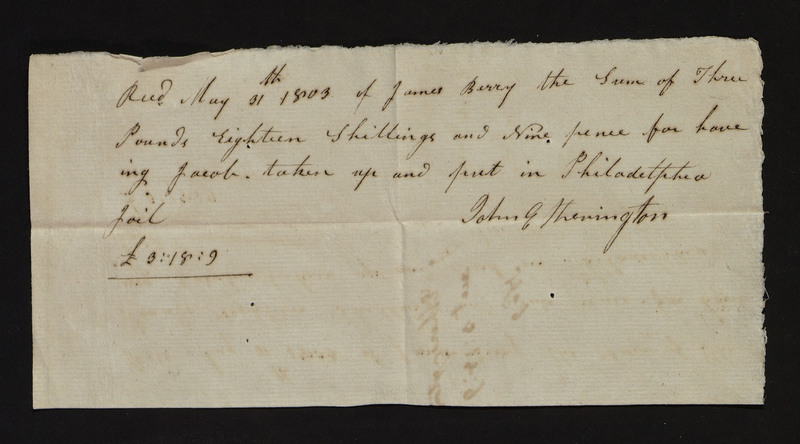 Recd. May 31th 1803 of James Berry the Sum of Three
Pounds Eighteen Shillings and Nine pence for have
ing Jacob. taken up and put in Philadelphea
Jail John Etherington
£ 3:18:9